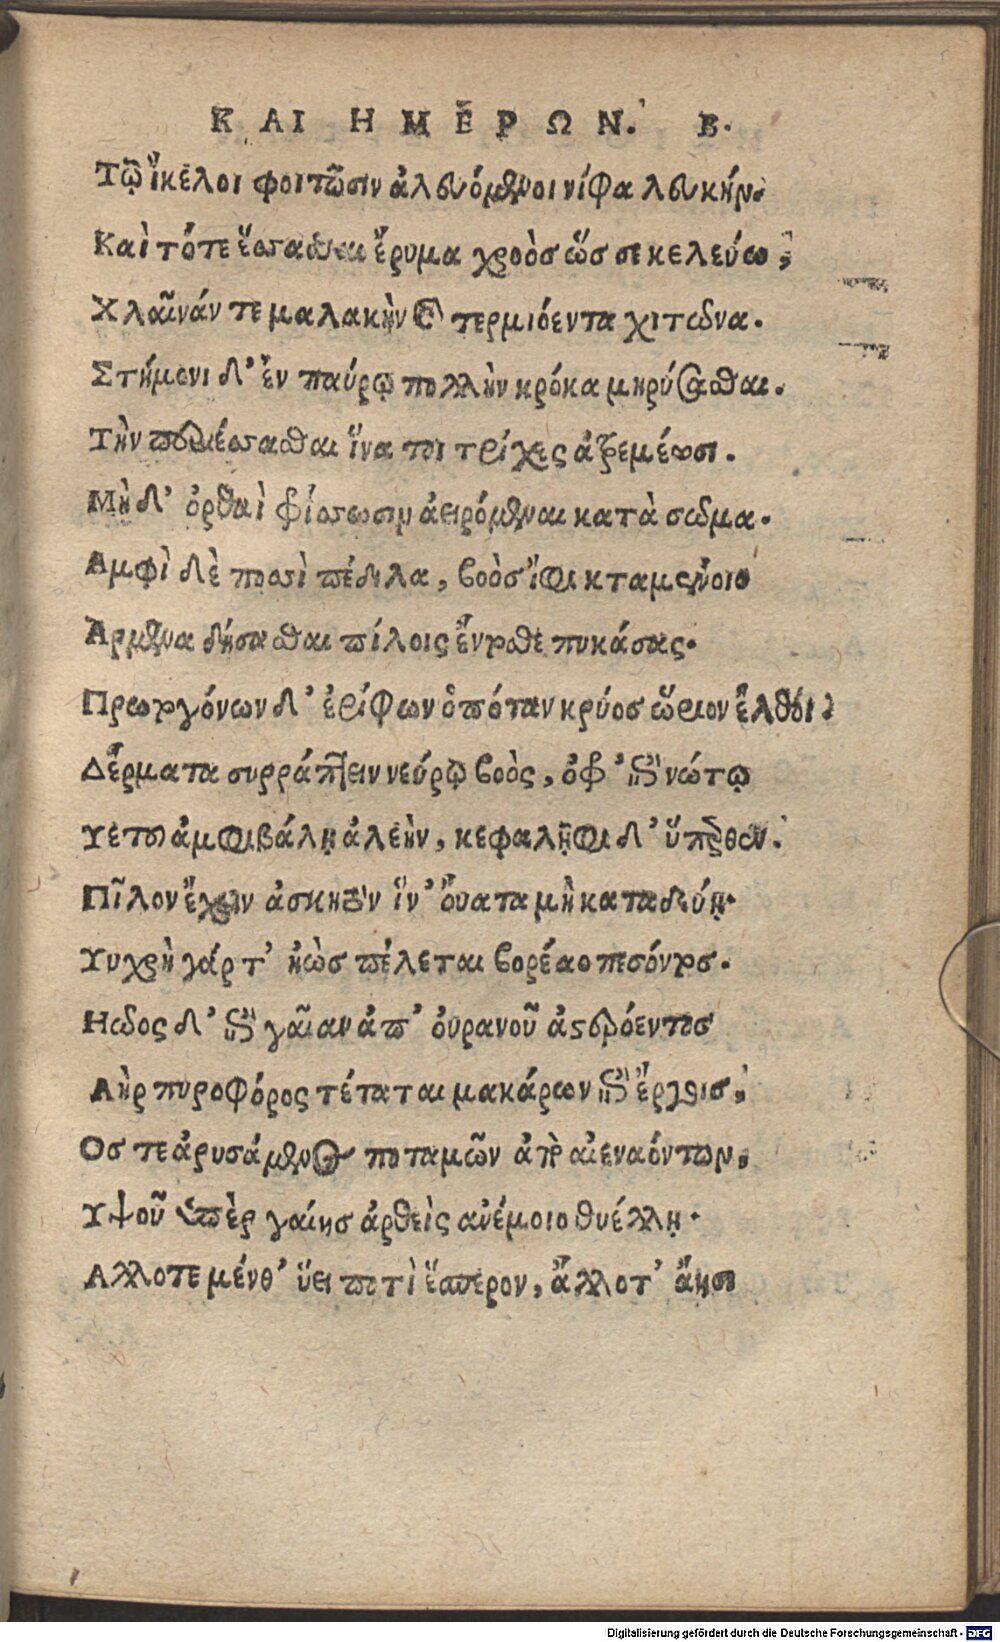 ΚΑΙ ΗΜΕΡΩΝ. Β.
Τῷ ἴκελοι φοιτῶσιν ἀλευόμενοι νίφα λευκήν.
Καὶ τότε ἕσσασθαι ἔρυμα χροὸς ὥς σε κελεύω,
Χλαῖνάν τε μαλακὴν καὶ τερμιόεντα χιτῶνα.
Στήμονι δ' ἐν παύρῳ πολλὴν κρόκα μηρύσασθαι.
Τὴν περιέσσασθαι ἵνα τοι τρίχες ἀτρεμέωσι.
Μὴ δ' ὀρθαὶ φρίσσωσιν ἀειρόμεναι κατὰ σῶμα.
Αμφὶ δὲ ποσὶ πέδιλα, βοὸς ἶφι κταμένοιο
Αρμενα δήσασθαι πίλοις ἔντοσθε πυκάσας.
Πρωτογόνων δ' ἐρίφων ὁπόταν κρύος ὥριον ἔλθοι.
Δέρματα συρράπτειν νεύρῳ βοὸς, ὄφρ' ἐπὶ νώτῳ
Υετοῦ ἀμφιβάλῃ ἀλεὴν, κεφαλῆφι δ' ὕπερθεν.
Πῖλον ἔχειν ἀσκητὸν ἵν' ὄυατα μὴ καταδεύῃ.
Υυχρὴ γάρ τ' ἠὼς πέλεται βορέαο πεσόντος.
Ηῶδος δ' ἐπὶ γαῖαν ἀπ' ὀυρανοῦ ἀστερόεντος
Αὴρ πυροφόρος τέταται μακάρων ἐπὶ ἔργοις,
Ος τε ἀρυσάμενος ποταμῶν ἀπὸ αἰεναόντων,
Υψοῦ ὑπὲρ γαίης ἀρθεὶς ἀνέμοιο θυέλλῃ.
Αλλοτε μένθ' ὕει ποτὶ ἕσπερον, ἄλλοτ' ἄησι
Digitalisierung gefördert durch die Deutsche Forschungsgemeinschaft - DFG